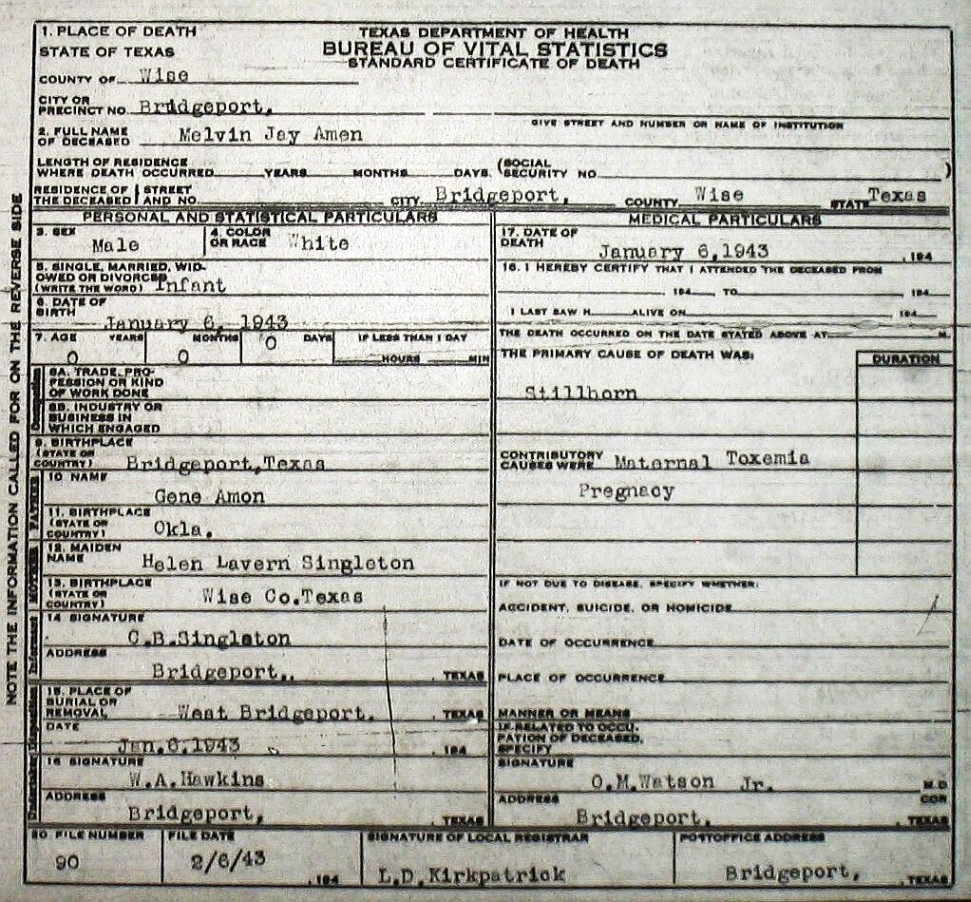 NOTE THE INFORMATION CALLED FOR ON THE REVERSE SIDE
1. PLACE OF DEATH
STATE OF TEXAS
TEXAS DEPARTMENT OF HEALTH
BUREAU OF VITAL STATISTICS
STANDARD CERTIFICATE OF DEATH
COUNTY OF Wise
CITY OR
PRECINCT NO. Bridgeport,
GIVE STREET AND NUMBER OR NAME OF INSTITUTION
2. FULL NAME
OF DECEASED Melvin Jay Amen
LENGTH OF RESIDENCE
WHERE DEATH OCCURRED YEARS MONTHS DAYS (SOCIAL
SECURITY NO. )
RESIDENCE OF STREET
THE DECEASED AND NO. CITY Bridgeport, COUNTY Wise STATE Texas
PERSONAL AND STATISTICAL PARTICULARS
3. SEX Male
4. COLOR
OR RACE White
5. SINGLE, MARRIED, WID-
OWED OR DIVORCED
(WRITE THE WORD) Infant
6. DATE OF
BIRTH January 6, 1943
7. AGE YEARS MONTHS DAYS IF LESS THAN 1 DAY
0 0 0 HOURS MIN
Occupation
8A. TRADE, PRO-
FESSION OR KIND
OF WORK DONE
8B. INDUSTRY OR
BUSINESS IN
WHICH ENGAGED
9. BIRTHPLACE
(STATE OR
COUNTRY) Bridgeport,Texas
FATHER
10 NAME
Gene Amon
11. BIRTHPLACE
(STATE OR
COUNTRY) Okla.
MOTHER
12. MAIDEN
NAME Helen Lavern Singleton
13. BIRTHPLACE
(STATE OR
COUNTRY) Wise Co.Texas
Informant
14 SIGNATURE
C.B.Singleton
ADDRESS
Bridgeport,. , TEXAS
15. PLACE OF
BURIAL OR
REMOVAL West Bridgeport. , TEXAS
DATE
Jan.6,1943 , 194
16 SIGNATURE
W.A.Hawkins
ADDRESS
Bridgeport, , TEXAS
MEDICAL PARTICULARS
17. DATE OF
DEATH January 6,1943 , 194
I HEREBY CERTIFY THAT I ATTENDED THE DECEASED FROM
194 TO 194
I LAST SAW H ALIVE ON 194
THE DEATH OCCURRED ON THE DATE STATED ABOVE AT M.
THE PRIMARY CAUSE OF DEATH WAS: DURATION
Stillborn
CONTRIBUTORY
CAUSES WERE Maternal Toxemia
Pregnacy
IF NOT DUE TO DISEASE, SPECIFY WHETHER:
ACCIDENT, SUICIDE, OR HOMICIDE
DATE OF OCCURRENCE
PLACE OF OCCURRENCE
MANNER OR MEANS
IF RELATED TO OCCU-
PATION OF DECEASED,
SPECIFY
SIGNATURE
O.M.Watson Jr. M.D.
COR
ADDRESS
Bridgeport. , TEXAS
20 FILE NUMBER FILE DATE SIGNATURE OF LOCAL REGISTRAR POSTOFFICE ADDRESS
90 2/6/43 , 194 L.D.Kirkpatrick Bridgeport, , TEXAS